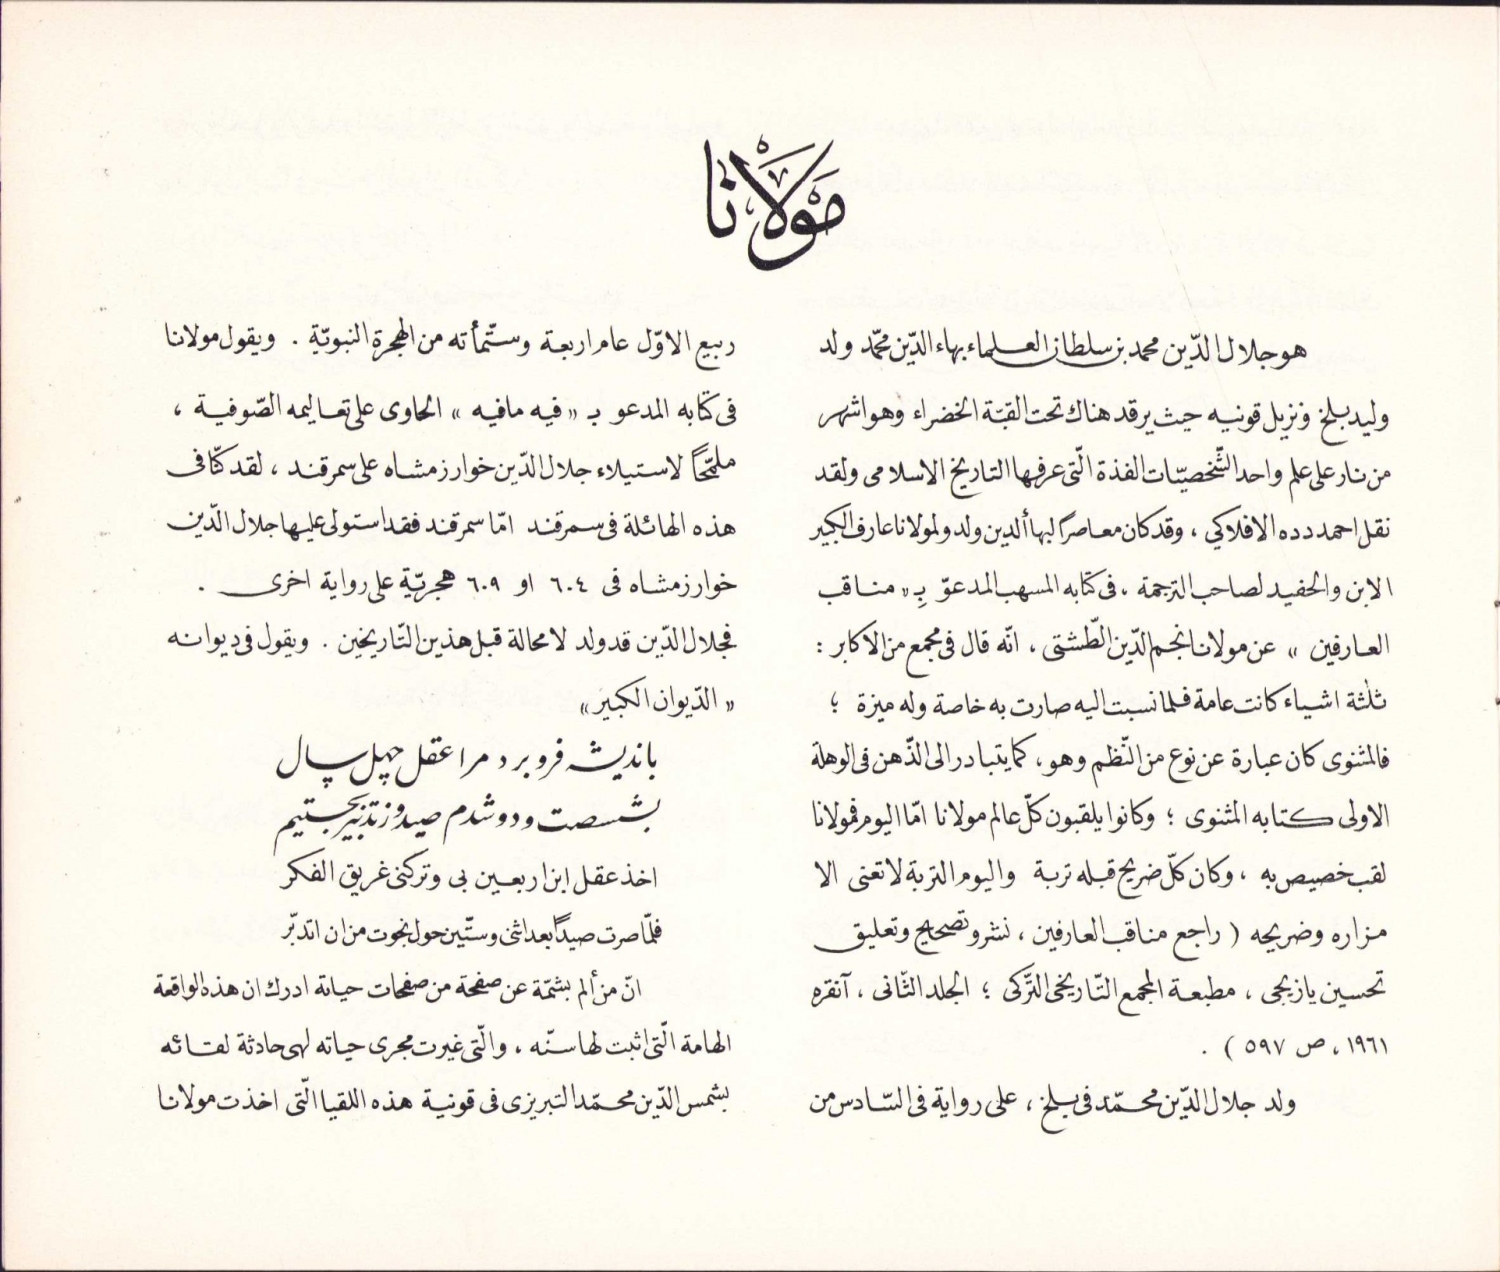 مَوْلَانَا
هو جلال الدّين محمد بن سلطان العلماء بهاء الدّين محمّد ولد
وليد بلخ ونزيل قونيه حيث يرقد هناك تحت القبّة الخضراء وهو اشهر
من نار على علم واحد الشّخصيّات الفذة الّتى عرفها التاريخ الاسلامى ولقد
نقل احمد دده الافلاكي ، وقد كان معاصراً لبهاألدين ولد ولمولانا عارف الكبير
الابن والحفيد لصاحب الترجمة ، فى كتابه المسهب المدعوّ بِـ « مناقب
العارفين » عن مولانا نجم الدّين الطّشتى ، انّه قال فى مجمع من الاكابر :
ثلٰثة اشياء كانت عامة فلما نسبت اليه صارت به خاصة وله ميزة ؛
فالمثنوى كان عبارة عن نوع من النّظم وهو ، كما يتبادر الى الذّهن فى الوهلة
الاولى كتابه المثنوى ؛ وكانوا يلقبون كلّ عالم مولانا امّا اليوم فمولانا
لقب خصيص به ، وكان كلّ ضريح قبله تربة واليوم التربة لا تعنى الا
مزاره وضريحه ( راجع مناقب العارفين ، نشر وتصحيح وتعليق
تحسين يازيجى ، مطبعة المجمع التّاريخى التّركى ؛ الجلد الثّانى ، آنقره
١٩٦١ ، ص ٥٩٧ ) .
ولد جلال الدّين محمّد فى بلخ ، على رواية فى السّادس من
ربيع الاوّل عام اربعة وستّمأته من الهجرة النبويّة . ويقول مولانا
فى كتابه المدعو بـ « فيه مافيه » الحاوى على تعاليمه الصّوفية ،
ملمّحاً لاستيلاء جلال الدّين خوارزمشاه على سمرقند ، لقد كنّا فى
هذه الهائلة فى سمرقند امّا سمرقند فقد استولى عليها جلال الدّين
خوارزمشاه فى ٦٠٤ او ٦٠٩ هجريّة على رواية اخرى .
فجلال الدّين قد ولد لا محالة قبل هذين التّاريخين . ويقول فى ديوانه
« الدّيوان الكبير »
باندیشه فرو برد مرا عقل چهل سال
بشصت و دو شدم صید و ز تدبیر بجستیم
اخذ عقل ابن اربعين بى وتركنى غريق الفكر
فلمّا صرت صيداً بعد اثنى وستّين حول نجوت من ان اتدبّر
انّ من ألم بشمّة عن صفحة من صفحات حياته ادرك ان هذه الواقعة
الهامة الّتى اثبت لها سنّه ، والّتى غيرت مجرى حياته لهى حادثة لقائه
بشمس الدّين محمّد التبريزى فى قونية هذه اللقيا الّتى اخذت مولانا